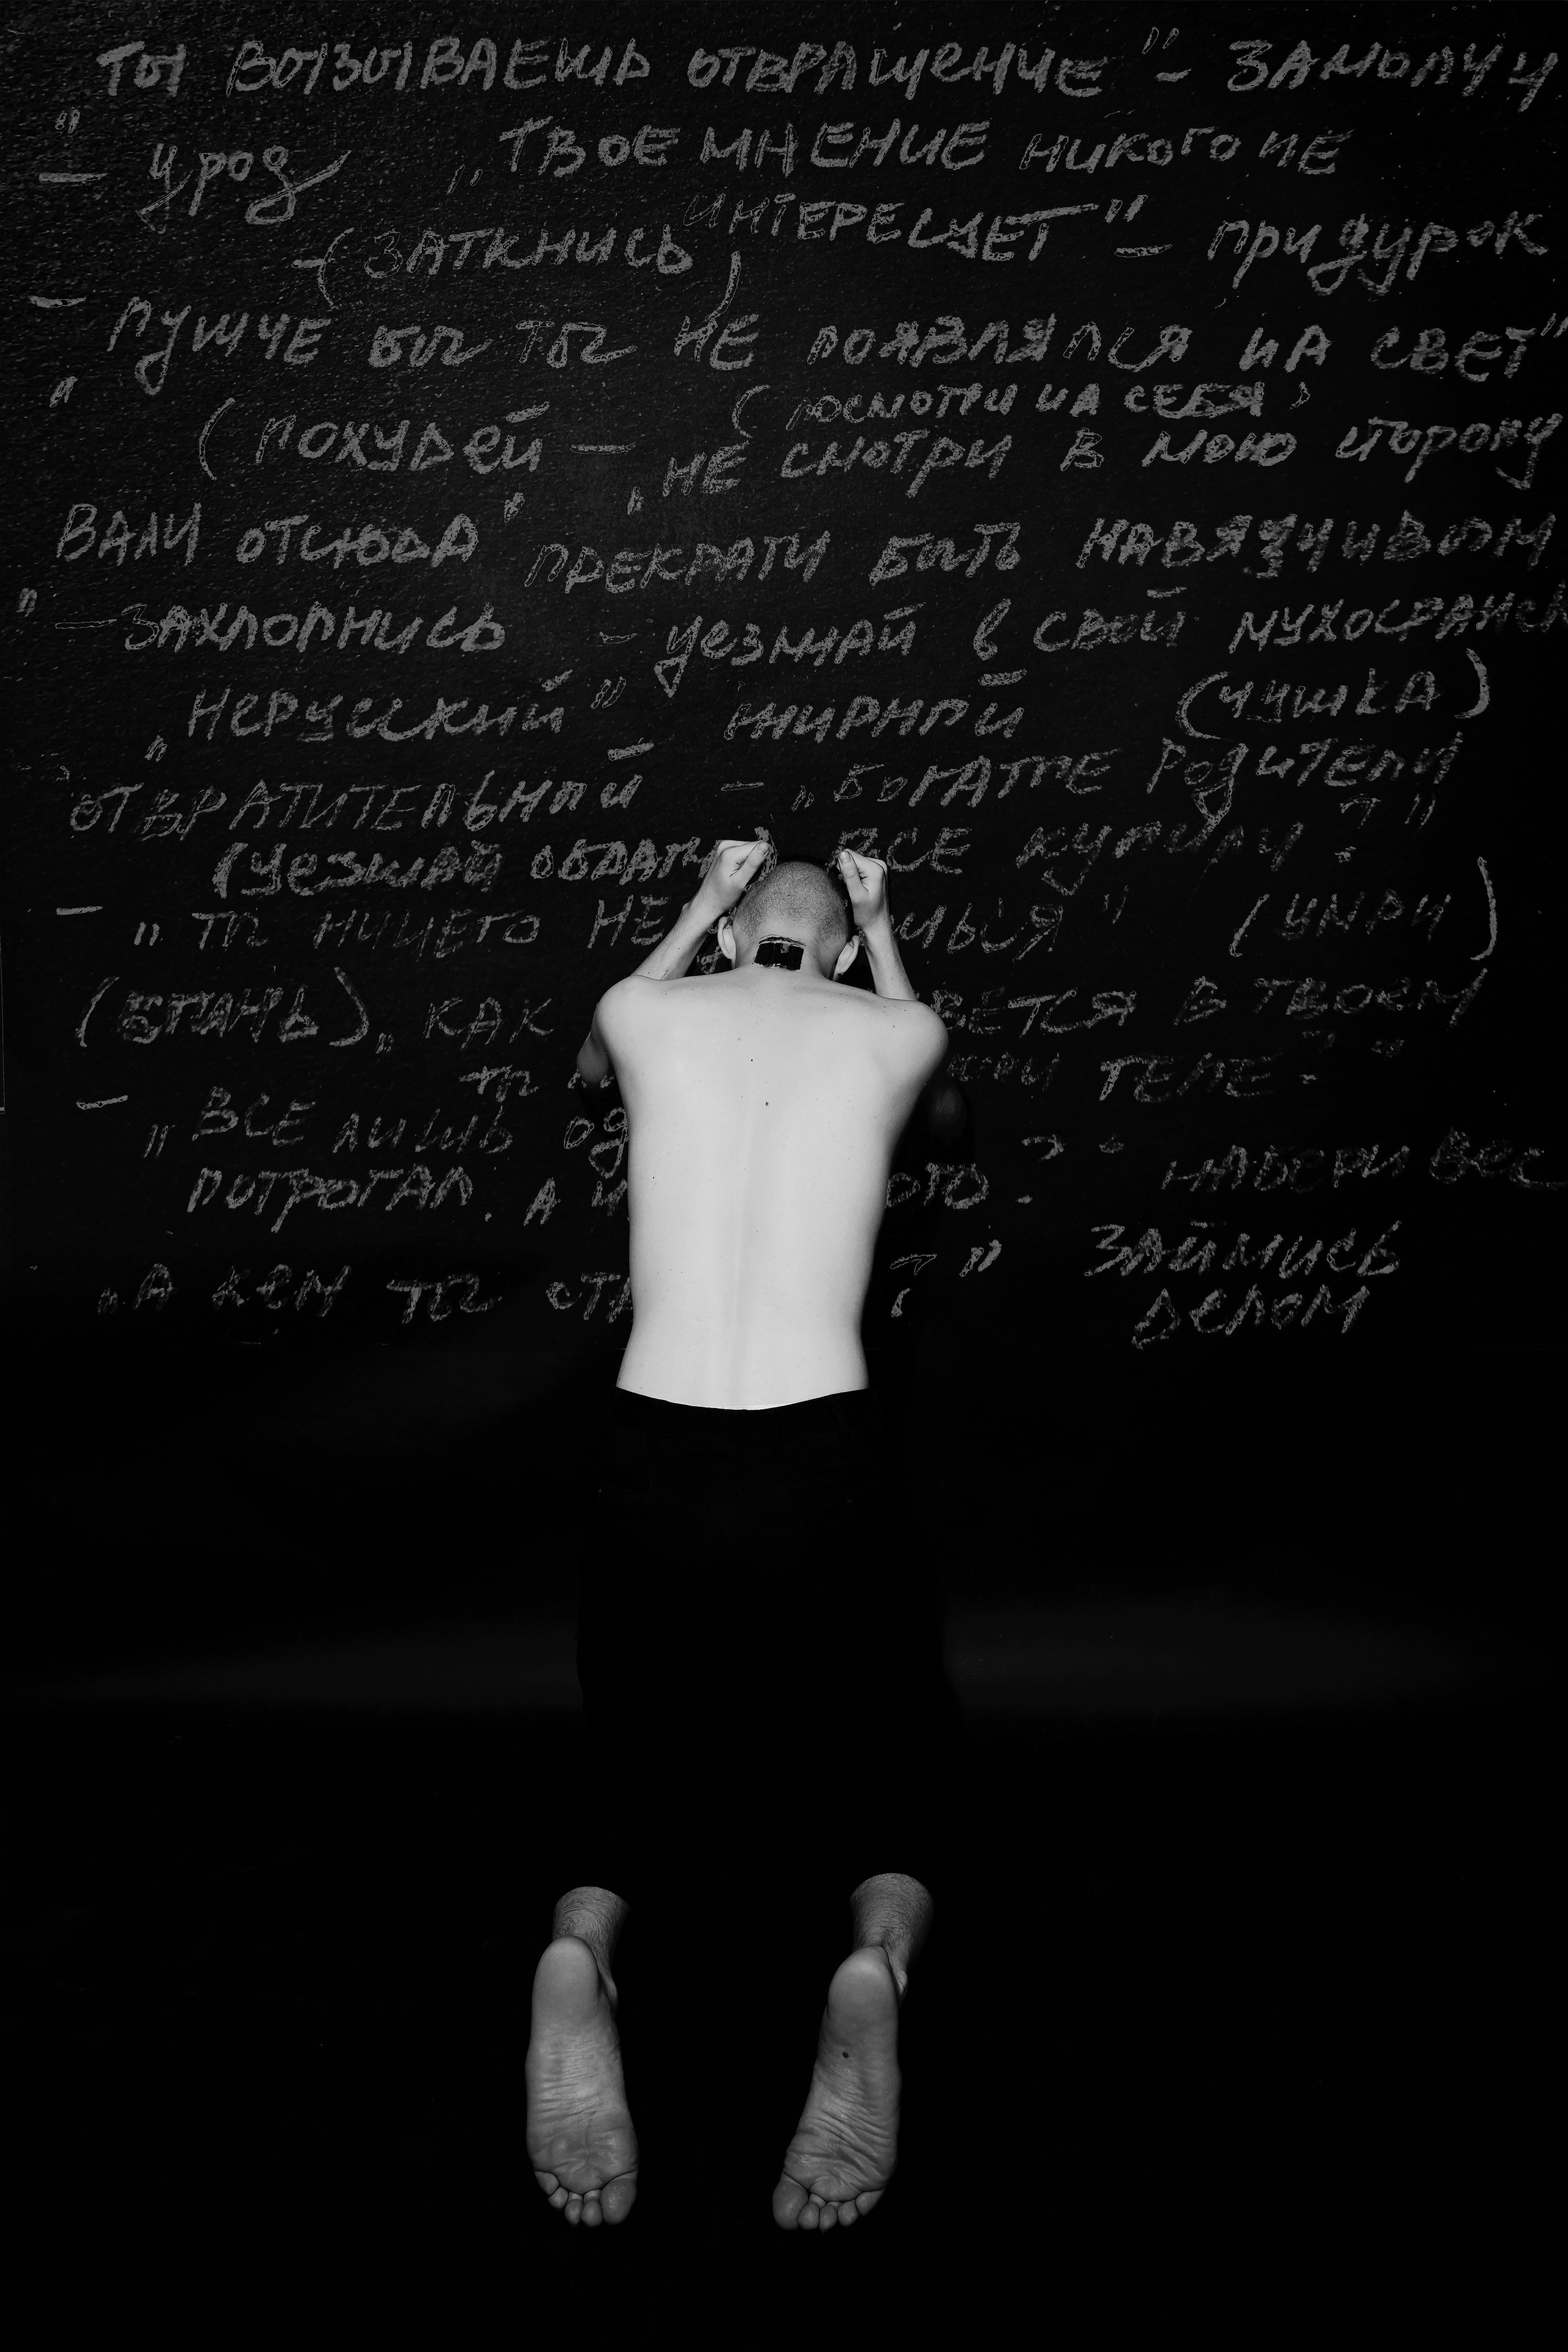 ты вызываешь отвращение" - замолчи
- урод "твое мнение никого не
интересует" - придурок
- (заткнись)
- лучше бы ты не появлялся на свет"
(посмотри на себя)
(похудей - "не смотри в мою сторону
вали отсюда" прекрати быть навязчивым
- захлопнись - уезжай в свой мухосранск
"нерусский" жирный (чушка)
отвратительный - "богатые родители
(уезжай обратно все купили?"
- "ты ничего не (умри)
(встань) "как в твоем
ты теле?"
- "все лишь
потрогал. а набери вес
"а кем ты ?" займись
делом